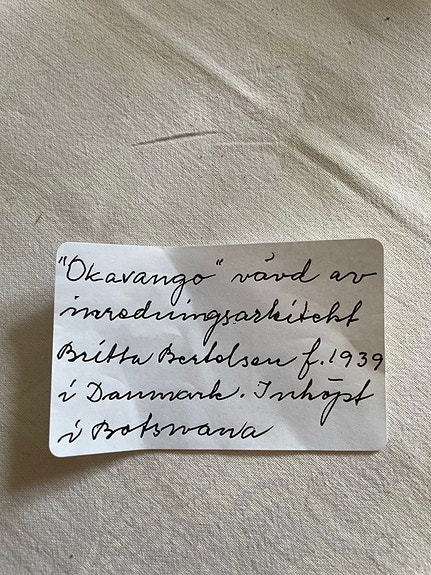 "Okavango" vävd av
inredningsarkitekt
Britta Bertelsen f. 1939
i Danmark. Inköpt
i Botswana